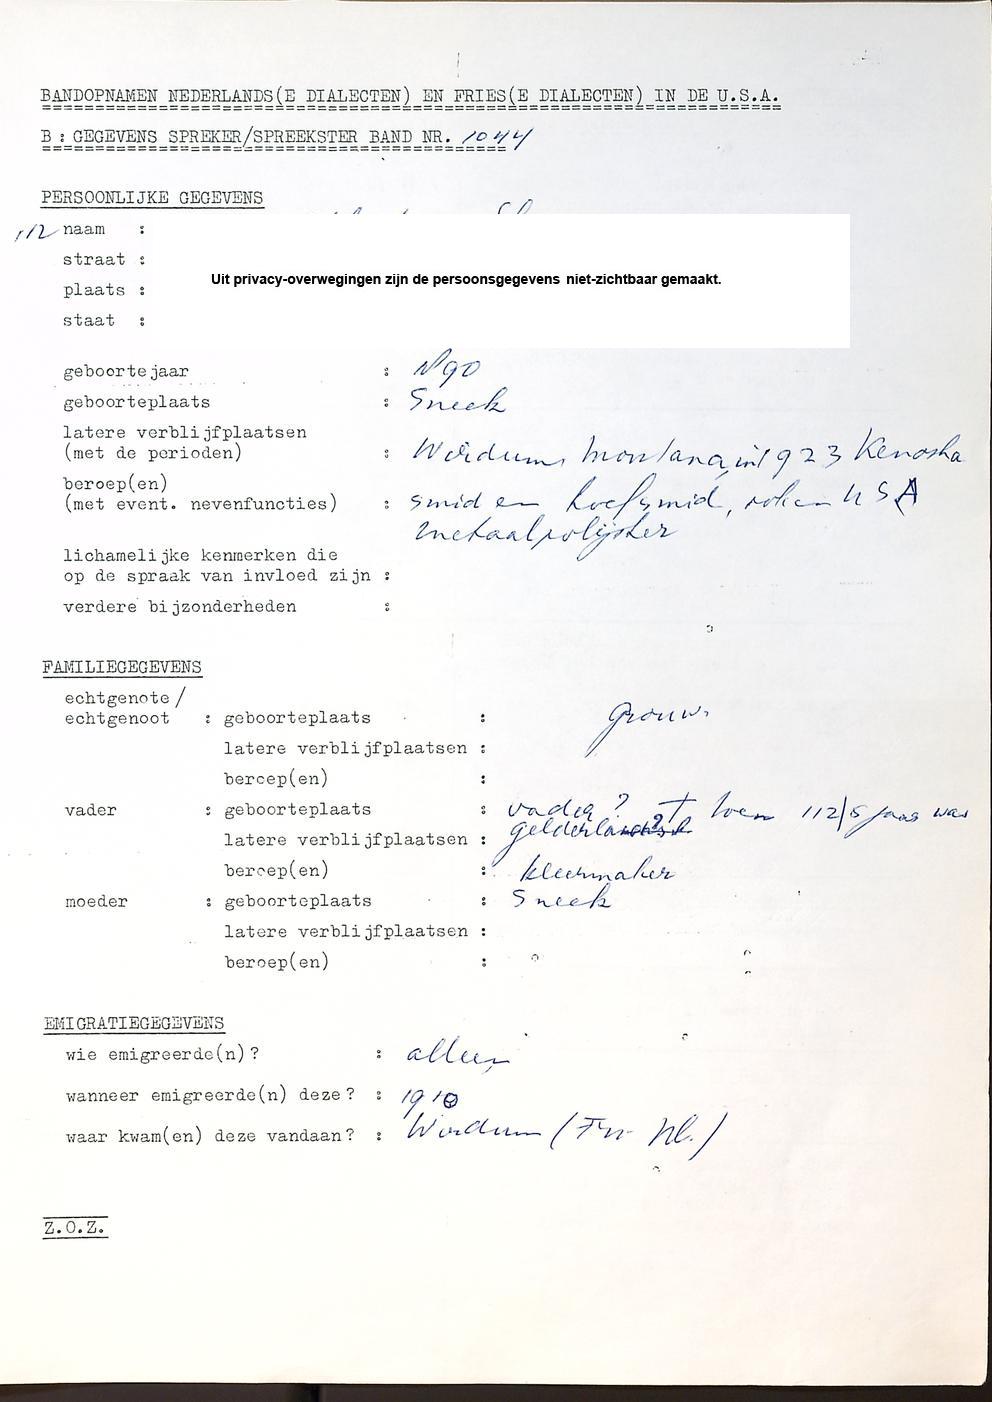 BANDOPNAMEN NEDERLANDS(E DIALECTEN) EN FRIES(E DIALECTEN) IN DE U.S.A.
B : GEGEVENS SPREKER/SPREEKSTER BAND NR. 1044
PERSOONLIJKE GEGEVENS
112 naam :
straat :
Uit privacy-overwegingen zijn de persoonsgegevens niet-zichtbaar gemaakt.
plaats :
staat :
geboortejaar : 1890
geboorteplaats : Sneek
latere verblijfplaatsen
(met de perioden) : Wirdum, Montana, in 1923 Kenosha
beroep(en)
(met event. nevenfuncties) : smid en hoefsmid, USA
metaalpolijster
lichamelijke kenmerken die
op de spraak van invloed zijn :
verdere bijzonderheden :
FAMILIEGEGEVENS
echtgenote/
echtgenoot : geboorteplaats : Grouw.
latere verblijfplaatsen :
beroep(en) :
vader : geboorteplaats : vader? † toen 112/5 jaar was
latere verblijfplaatsen : Gelderland?
beroep(en) : kleermaker
moeder : geboorteplaats : Sneek
latere verblijfplaatsen :
beroep(en) :
EMIGRATIEGEGEVENS
wie emigreerde(n)? : alleen
wanneer emigreerde(n) deze? : 1910
waar kwam(en) deze vandaan? : Wirdum (Fr. Nl.)
Z.O.Z.